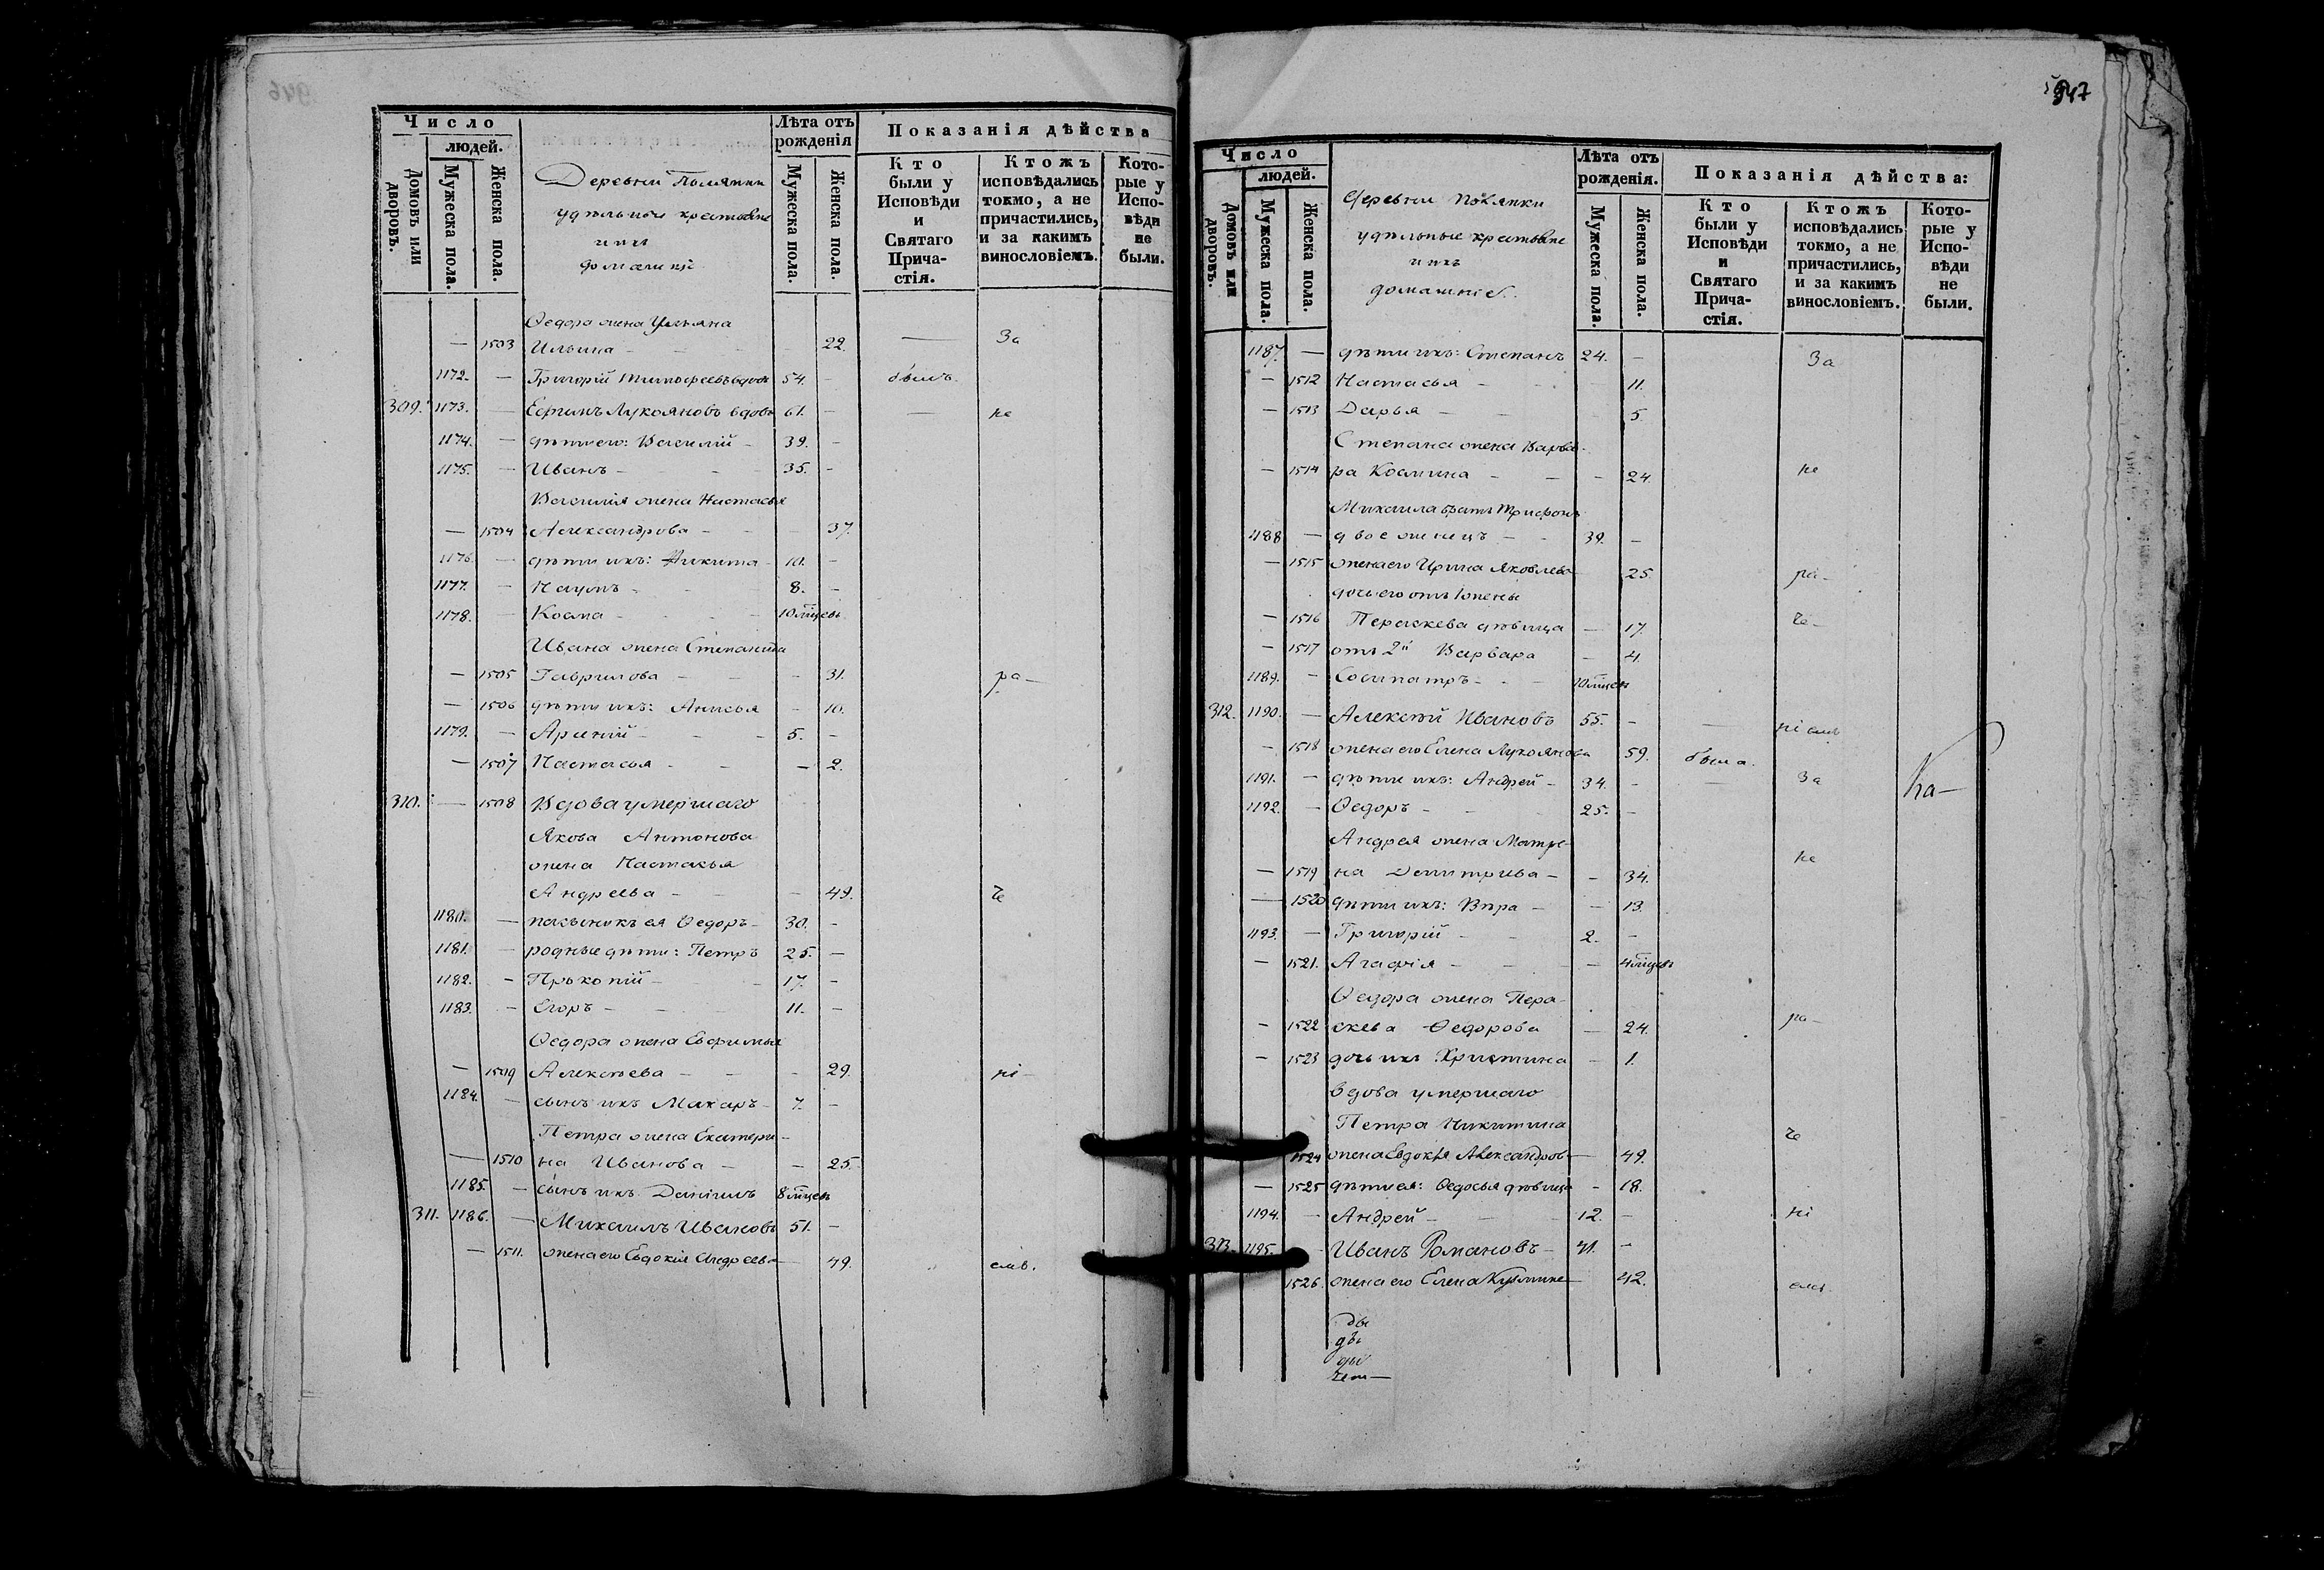 Число
людей.
Домовъ или дворовъ.
Мужеска пола.
Женска пола.
Деревни Полянки
удѣльные крестьяне
и ихъ
домашніе
Лѣта отъ рожденія
Мужеска пола.
Женска пола.
Показанія дѣйства
Кто были у Исповѣди и Святаго Прича-стія.
Ктожъ исповѣдались токмо, а не причастились, и за какимъ винословіемъ.
Кото-рые у Испо-вѣди не были.
Ѳедора жена Ульяна
— 1503 Ильина — 22. — За
1172. — Григорій Тимофеевъ вдовъ 54. — былъ
309. 1173. — Ефимъ Лукояновъ вдовъ 61. — — не
1174. — дѣти его: Василій — 39. —
1175. — Иванъ — 35. —
Василія жена Настасья
— 1504 Александрова — 37.
1176. — дѣти ихъ: Никита — 10. —
1177. — Наумъ — 8. —
1178. — Косма — 10 мѣсцевъ
Ивана жена Степанида
— 1505 Гаврилова — 31. ра—
— 1506 дѣти ихъ: Анисья — 10.
1179. — Арсеній — 5. —
— 1507 Настасья — 2.
310. — 1508 Вдова умершаго
Якова Антонова
жена Настасья
Андреева — 49. че
1180. — пасынокъ ея Ѳедоръ — 30. —
1181. — родные дѣти: Петръ 25. —
1182. — Прокопій — 17. —
1183. — Егоръ — 11. —
Ѳедора жена Евфимья
— 1509 Алексѣева — 29. ні—
1184. — сынъ ихъ Макаръ — 7. —
Петра жена Екатери-
— 1510 на Иванова — 25.
1185. — сынъ ихъ Даніилъ 8 мѣсцевъ
311. 1186. — Михаилъ Ивановъ 51. —
— 1511. жена его Евдокія Андреева — 49. емъ.
547
Число
людей.
Домовъ или дворовъ.
Мужеска пола.
Женска пола.
Деревни Полянки
удѣльные крестьяне
и ихъ
домашніе.
Лѣта отъ рожденія.
Мужеска пола.
Женска пола.
Показанія дѣйства:
Кто были у Исповѣди и Святаго Прича-стія.
Ктожъ исповѣдались токмо, а не причастились, и за какимъ винословіемъ.
Кото-рые у Испо-вѣди не были.
1187. — дѣти ихъ: Степанъ 24. — За
— 1512 Настасья — 11.
— 1513 Дарья — 5.
Степана жена Варва-
— 1514 ра Космина — 24. не
Михаила братъ Трифонъ
1188 — двоеженецъ — 39. —
— 1515 жена его Ирина Яковлева 25. ра—
дочь его отъ 1 жены
— 1516 Параскева дѣвица — 17. че—
— 1517 отъ 2й Варвара — 4.
1189. — Сосипатръ — 10 мѣсцевъ
312. 1190. — Алексѣй Ивановъ 55. — — ніемъ
— 1518 жена его Елена Лукоянова 59. была.
1191. — дѣти ихъ: Андрей — 34. — — За
На—
1192. — Ѳедоръ — 25. —
Андрея жена Матре-
— 1519 на Димитріева — 34. не
— 1520 дѣти ихъ: Вѣра — 13.
1193. — Григорій — 2. —
— 1521. Агафія — 4 мѣсцевъ
Ѳедора жена Пара-
— 1522 скева Ѳедорова — 24. ра—
— 1523 дочь ихъ Христина — 1.
вдова умершаго
Петра Никитина че
1524 жена Евдокія Александров— 49.
— 1525 дѣти ея: Ѳедосья дѣвица — 18.
1194. — Андрей — 12. — ні
313. 1195. — Иванъ Романовъ — 41. —
1526. жена его Елена Кузмина 42. емъ.